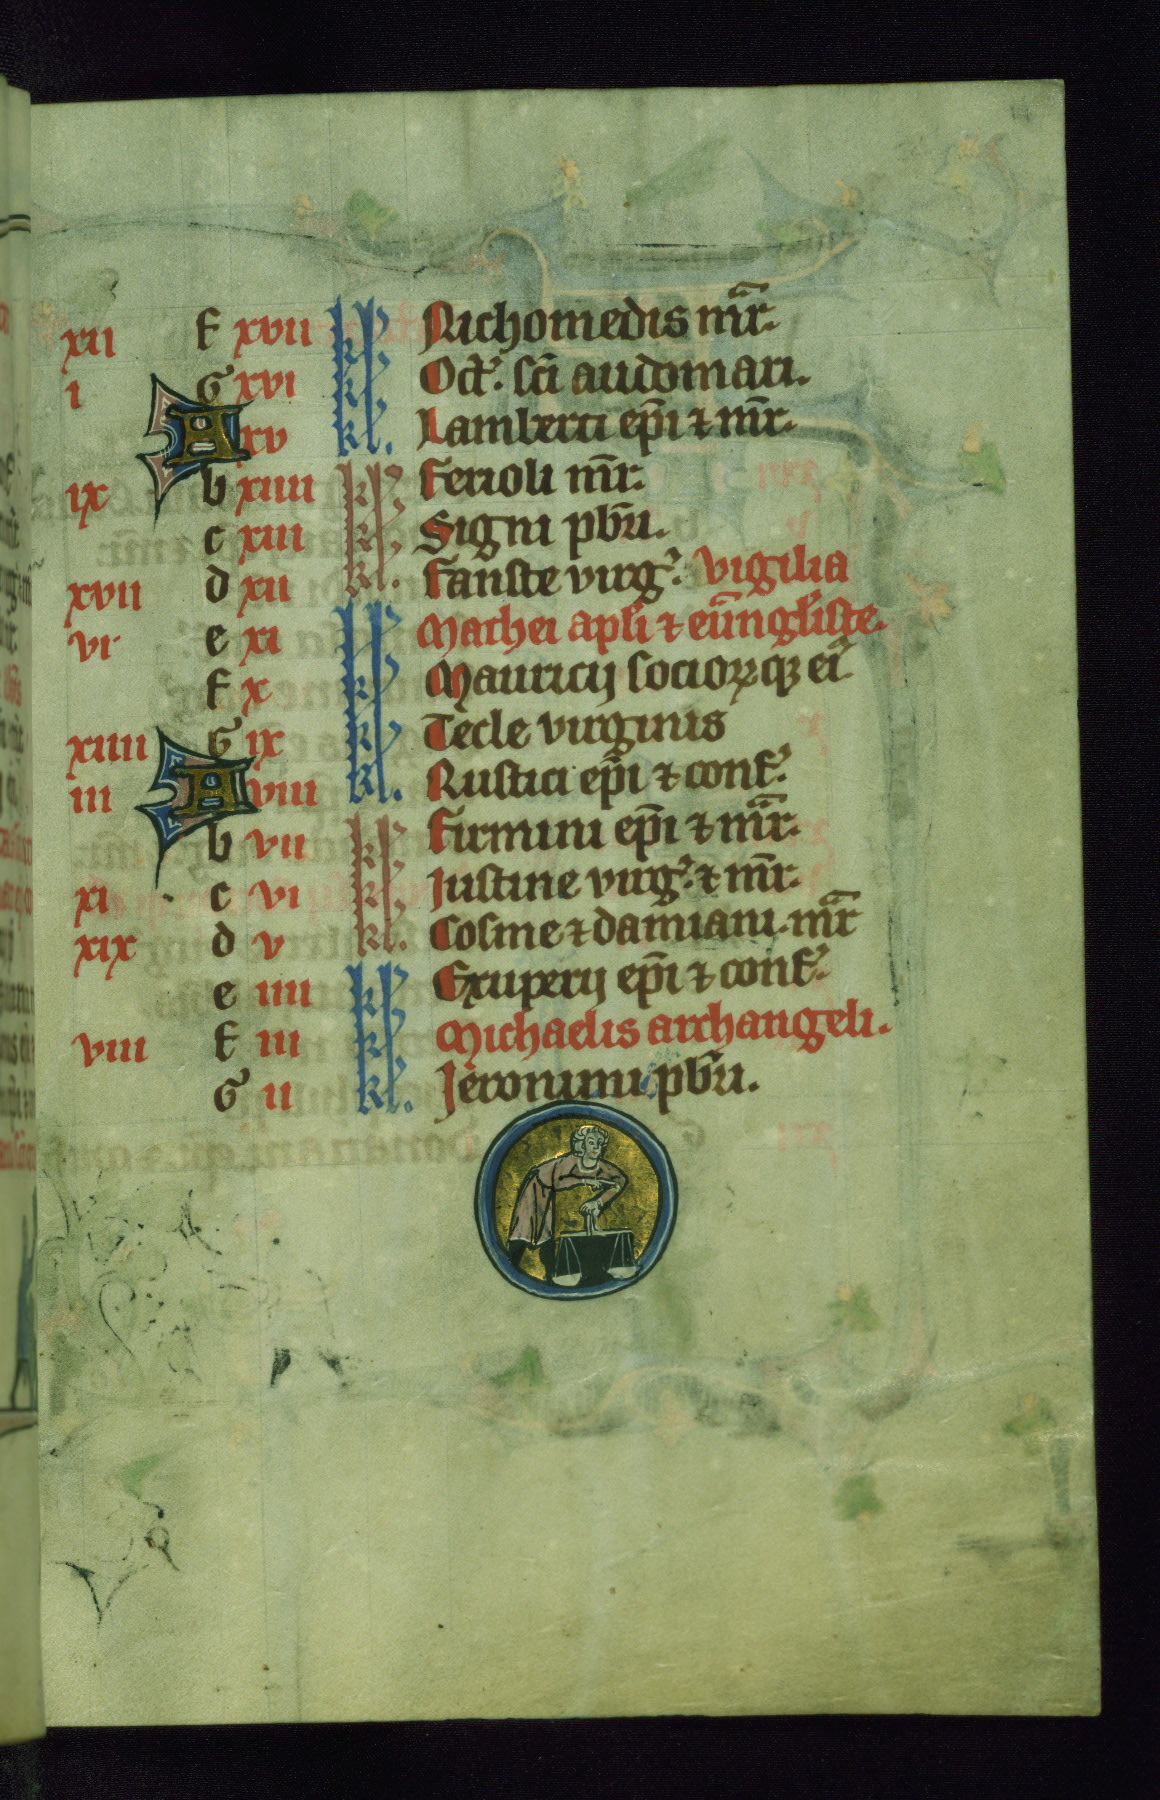 xii f xvii kl. Nichomedis mr̄.
i G xvi kl. Oct. sci audomari.
A xv kl. Lamberti epi ⁊ mr̄.
ix b xiiii kl. Ferioli mr̄.
c xiii kl. Signi pbri.
xvii d xii kl. Fauste virg. vigilia
vi e xi kl. Mathei apli ⁊ euūngliste.
f x kl. Mauricij socioꝝqꝫ ei'
xiiii G ix kl. Tecle virginis
iii A viii kl. Rustici epi ⁊ conf.
b vii kl. Firmini epi ⁊ mr̄.
xi c vi kl. Iustine virg. ⁊ mr̄.
xix d v kl. Cosme ⁊ damiani. mr̄
e iiii kl. Exuperij epi ⁊ conf.
viii f iii kl. Michaelis archangeli.
G ii kl. Jeronimi pbri.